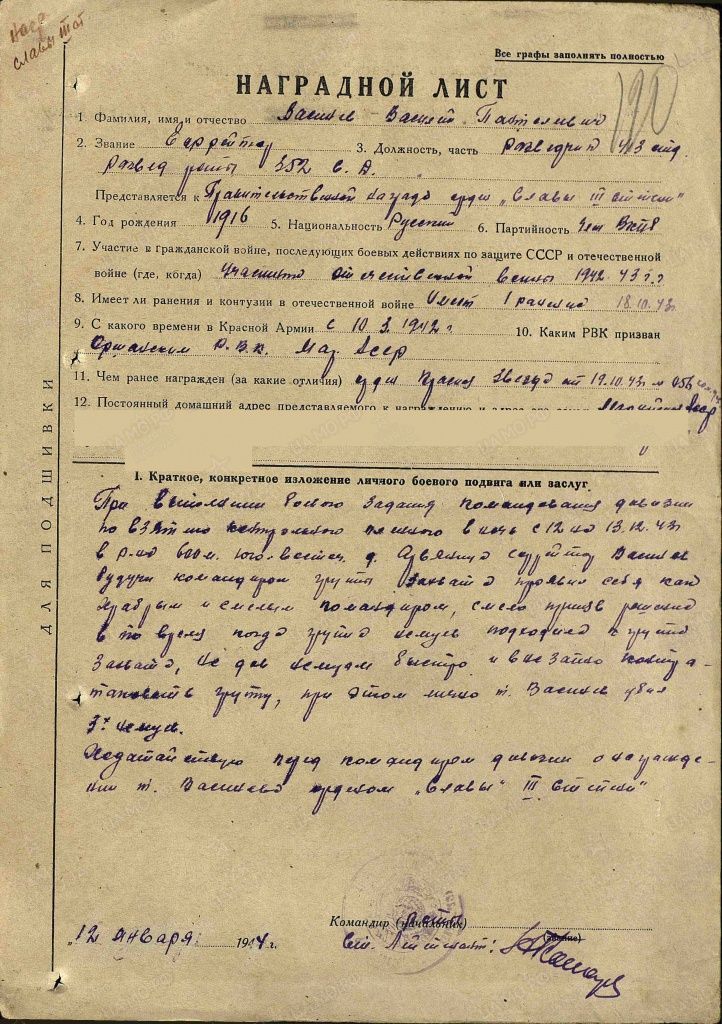 Наgr
славы III ст
Все графы заполнять полностью
190
НАГРАДНОЙ ЛИСТ
1 Фамилия, имя и отчество Васильев Василий Пантелеевич
2. Звание Ефрейтор 3. Должность, часть Разведчик 413 отд.
Развед роты 352 с.д.
Представляется к Правительственной награде орден „Славы III степени"
4. Год рождения 1916 5. Национальность Русский 6. Партийность Член ВКПб
7. Участие в гражданской войне, последующих боевых действиях по защите СССР и отечественной
войне (где, когда) Участник отечественной войны 1942-43 г.г
8. Имеет ли ранения и контузии в отечественной войне Имеет 1 ранение 18.10.43г
9. С какого времени в Красной Армии с 10.3.1942г 10. Каким РВК призван
Оршанским Р.В.К. Мар. АССР
11. Чем ранее награжден (за какие отличия) орден Красная Звезда от 19.10.43г № 056
12. Постоянный домашний адрес представляемого к награждению и адрес его семьи АССР
ДЛЯ ПОДШИВКИ
I. Краткое, конкретное изложение личного боевого подвига или заслуг
При выполнении боевого задания командования дивизии
по взятию контрольного пленного в ночь с 12 на 13.12.43г
в р-не 600 м. юго-восточ. д. ефрейтор Васильев
будучи командиром группы захвата проявил себя как
храбрым и смелым командиром, смело приняв решение
в то время когда группа немцев подходила к группе
захвата, не дав немцам быстро и внезапно контр-а-
таковать группу, при этом лично т. Васильев убил
3х немцев.
Ходатайствую перед командиром дивизии о награжде-
нии т. Васильева орденом „Славы" III степени"
Командир (начальник) роты
(звание)
„12 января 1944 г.
Ст. Лейтенант: